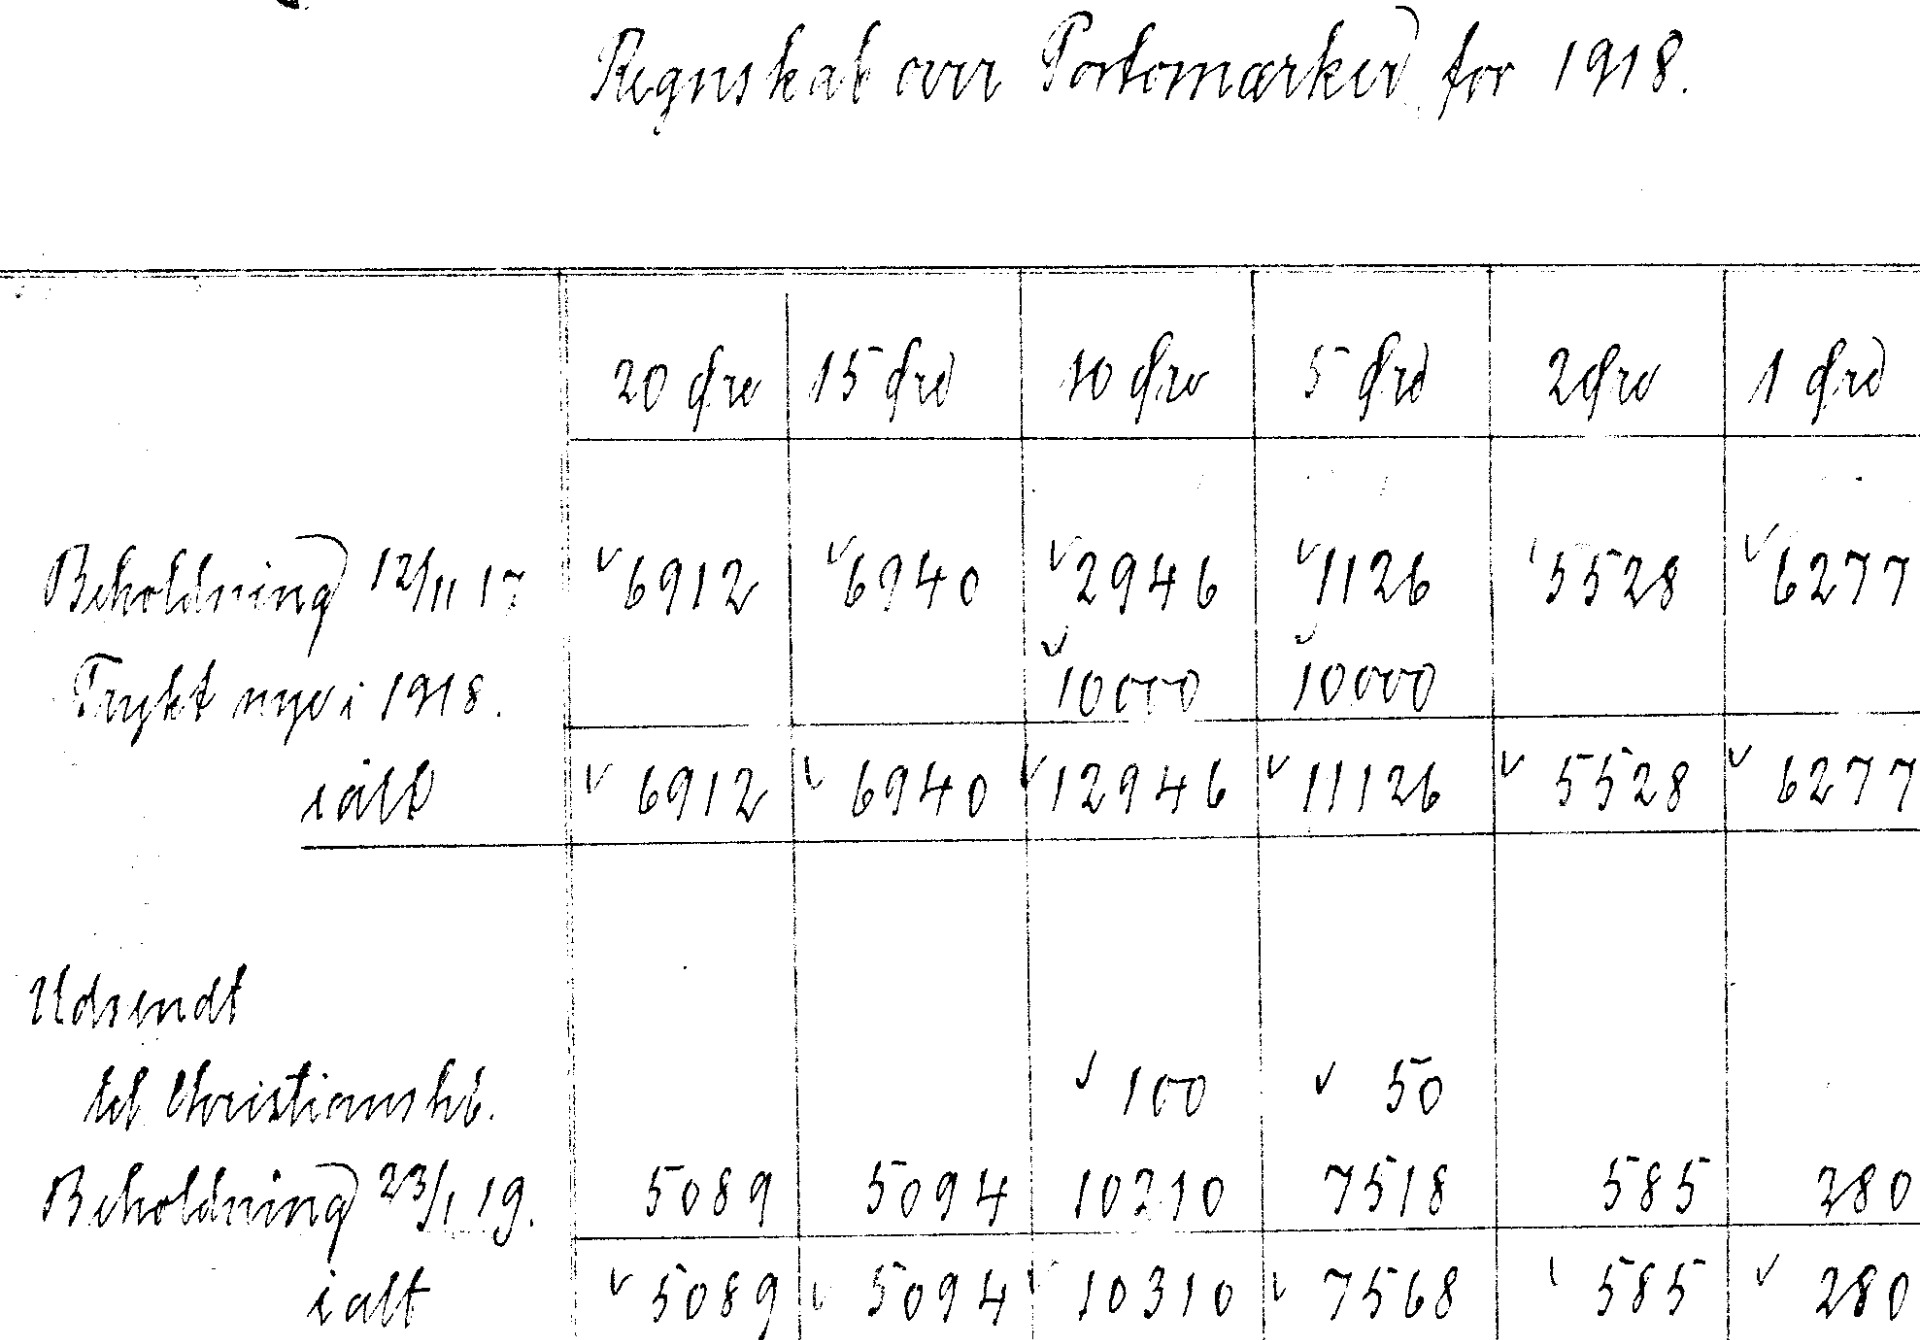 Regnskab over Portomærker for 1918.
20 Øre 15 Øre 10 Øre 5 Øre 2 Øre 1 Øre
Beholdning 12/11 17 6912 6940 2946 1126 5528 6277
Trykt nye i 1918. 10000 10000
ialt 6912 6940 12946 11126 5528 6277
Udsendt
til Christianshb. 100 50
Beholdning 23/1 19. 5089 5094 10210 7518 585 280
ialt 5089 5094 10310 7568 585 280